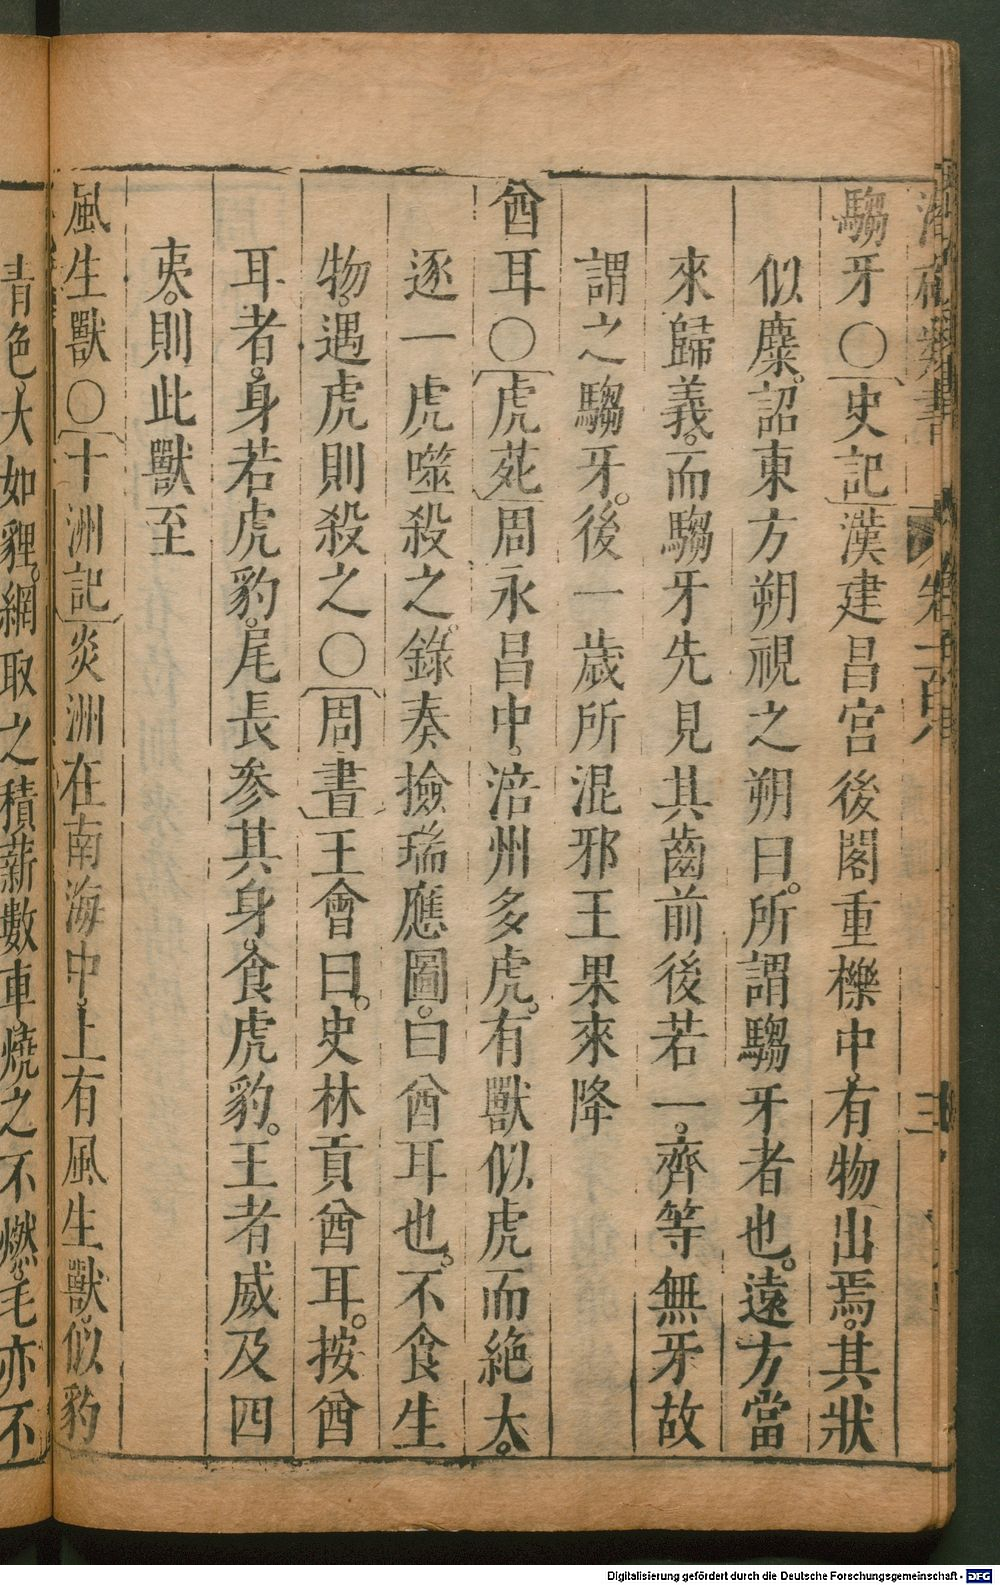 騶牙〇史記漢建昌宮後閣重櫟中有物出焉其狀
似麋詔東方朔視之朔曰所謂騶牙者也遠方當
來歸義而騶牙先見其齒前後若一齊等無牙故
謂之騶牙後一歲所混邪王果來降
酋耳〇虎苑周永昌中涪州多虎有獸似虎而絶大
逐一虎噬殺之錄奏撿瑞應圖曰酋耳也不食生
物遇虎則殺之〇周書王會曰史林貢酋耳按酋
耳者身若虎豹尾長參其身食虎豹王者威及四
夷則此獸至
風生獸〇十洲記炎洲在南海中上有風生獸似豹
青色大如貍網取之積薪數車燒之不燃毛亦不
Digitalisierung gefördert durch die Deutsche Forschungsgemeinschaft - DFG